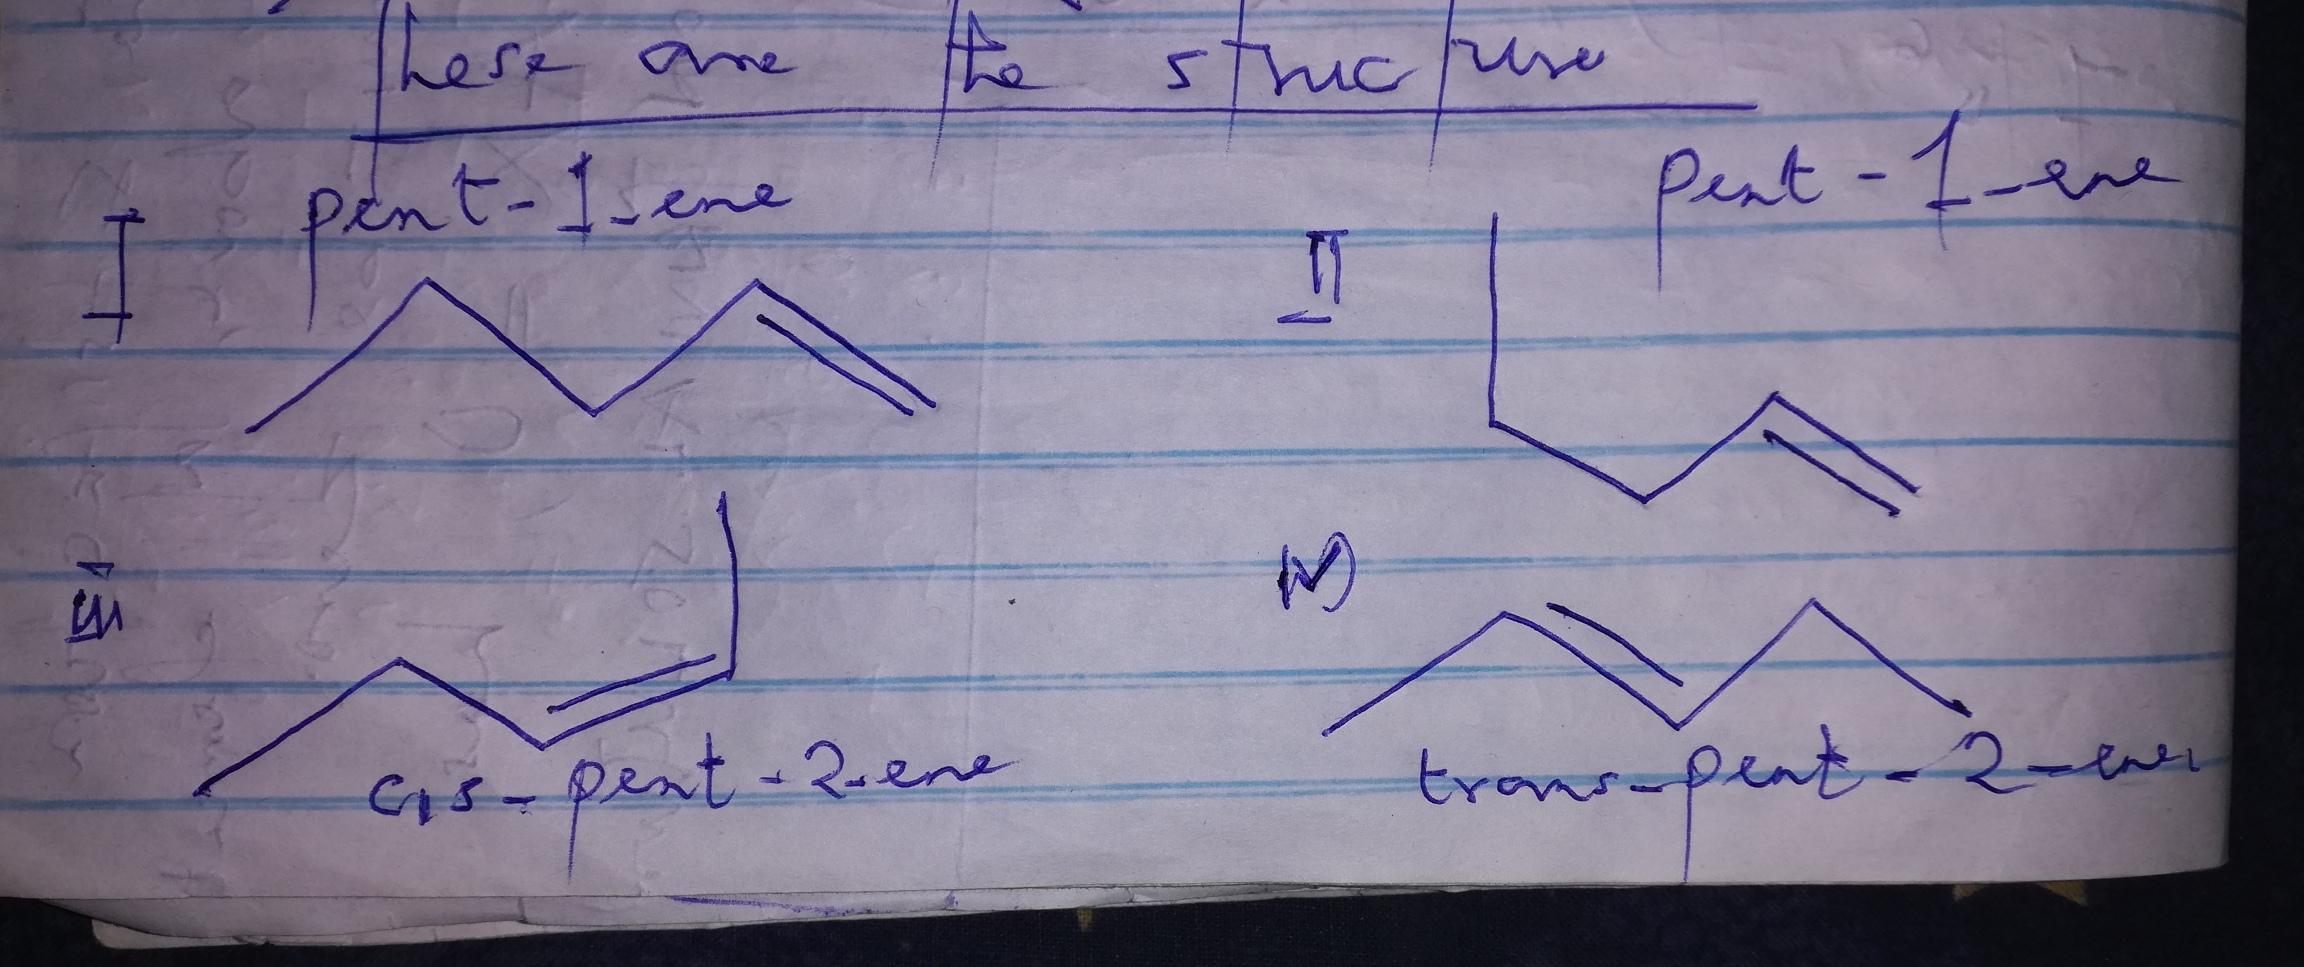 These are the structure
I pent-1-ene
II pent-1-ene
III
cis-pent-2-ene
IV)
trans-pent-2-ene